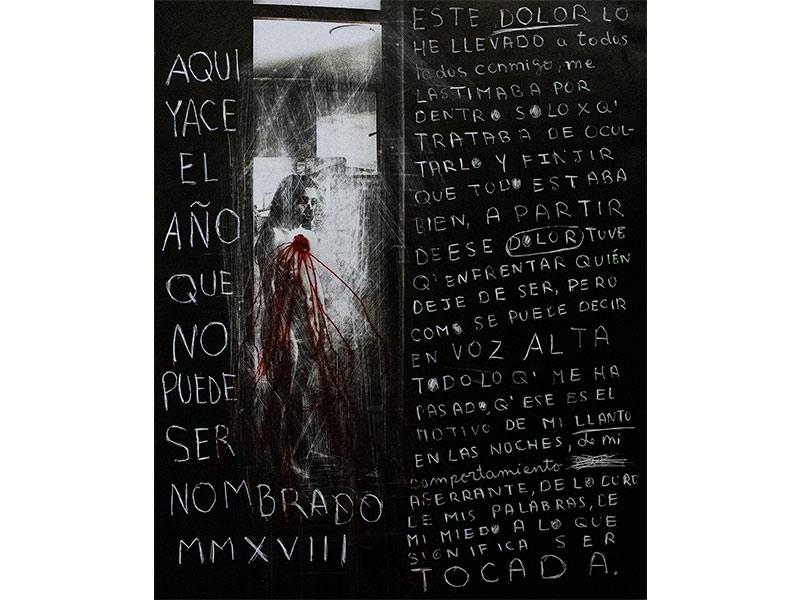 AQUI
YACE
EL
AÑO
QUE
NO
PUEDE
SER
NOMBRADO
MMXVIII
ESTE DOLOR LO
HE LLEVADO a todos
lados conmigo, me
LASTIMABA POR
DENTRO SOLO X Q'
TRATABA DE OCUL-
TARLO Y FINJIR
QUE TODO ESTABA
BIEN, A PARTIR
DE ESE DOLOR TUVE
Q' ENFRENTAR QUIÉN
DEJE DE SER, PERO
COMO SE PUEDE DECIR
EN VOZ ALTA
TODO LO Q' ME HA
PASADO, Q' ESE ES EL
MOTIVO DE MI LLANTO
EN LAS NOCHES, de mi
comportamiento
ABERRANTE, DE LO DURO
DE MIS PALABRAS, DE
MI MIEDO A LO QUE
SIGNIFICA SER
TOCADA.